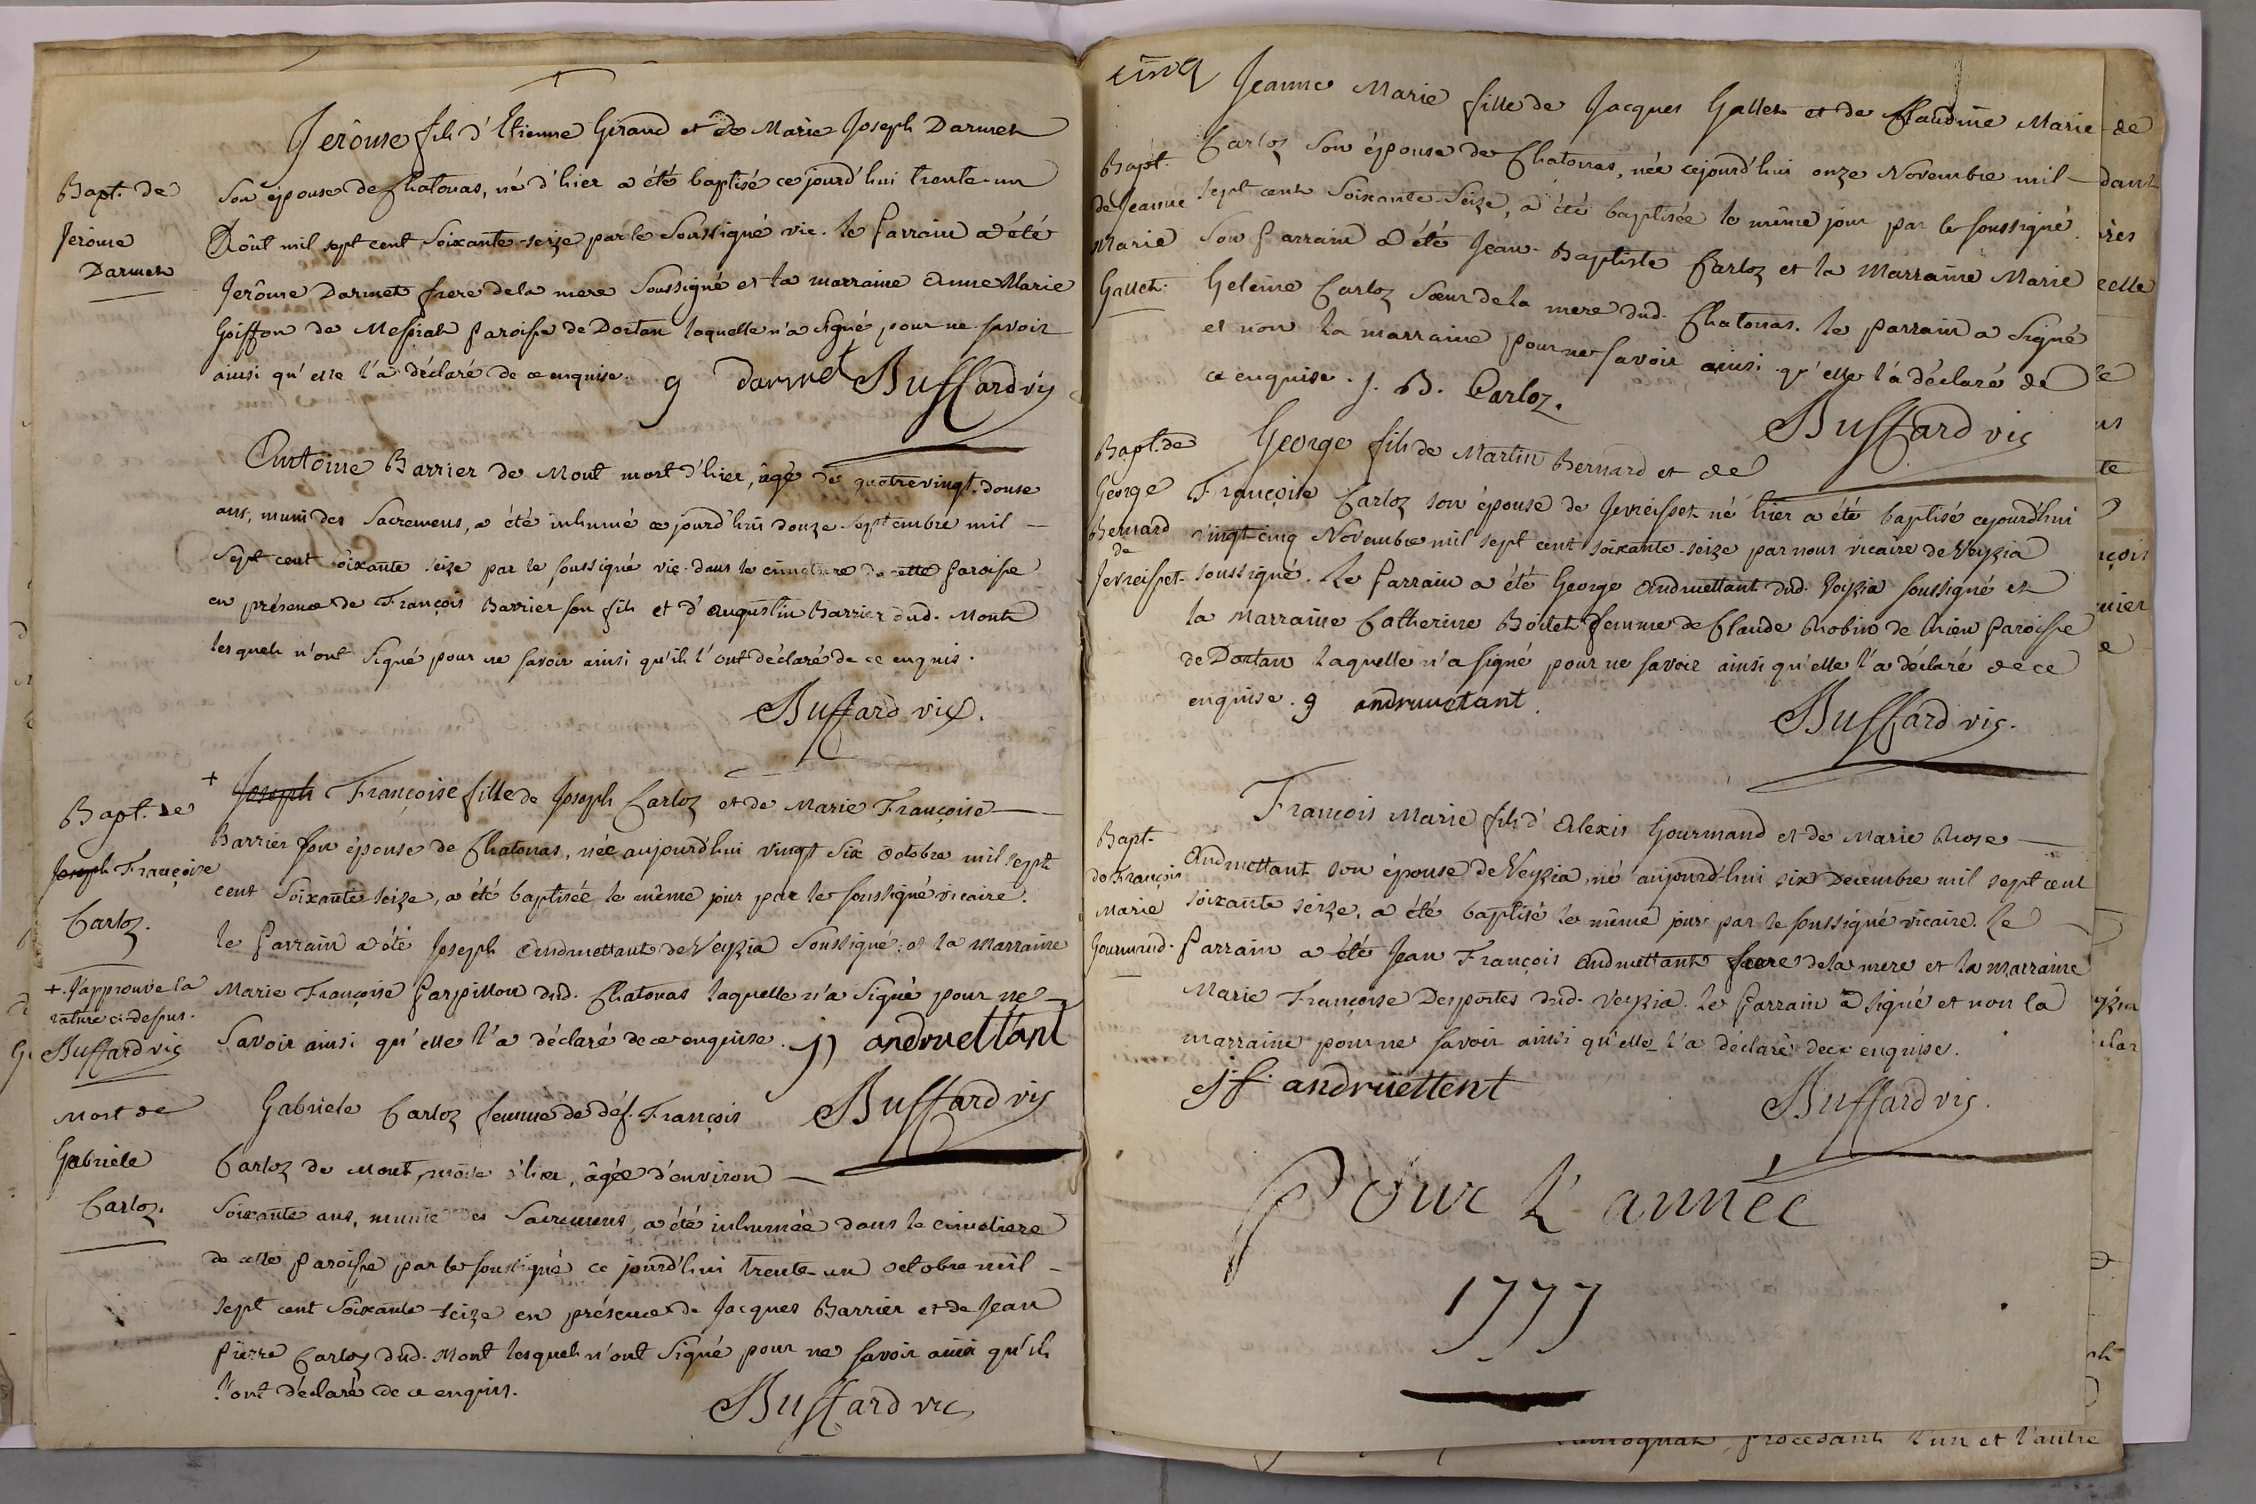 Jerôme fils d'Etienne Giraud et de Marie Joseph Darmet
Bapt. de
Jerôme
Darmet
son épouse de Chatonas, né d'hier a été baptisé ce jourd'hui trente-un
Aôût mil sept cent soixante-seize par le soussigné vic. le Parrain a été
Jerôme Darmet frere de la mere soussigné et la marraine Anne Marie
Goiffon de Messiah Paroisse de Dortan laquelle n'a signé pour ne savoir
ainsi qu'elle l'a déclaré de ce enquise. g Darmet Buffard vic
Antoine Barrier de Mont mort d'hier, âgé de quatrevingt-douse
ans, muni des Sacremens, a été inhumé ce jourd'hui douze Septembre mil
sept cent soixante seize par le soussigné vic. dans le cimetiere de cette Paroisse
en présence de François Barrier son fils et d'Augustin Barrier dud. Mont
lesquels n'ont signé pour ne savoir ainsi qu'ils l'ont déclaré de ce enquis.
Buffard vic.
Bapt. de
Joseph Françoise
Carloz.
+ Joseph Françoise fille de Joseph Carloz et de Marie Françoise
Barrier son épouse de Chatonas, née aujourd'hui vingt six Octobre mil sept
cent soixante seize, a été baptisée le même jour par le soussigné vicaire.
le Parrain a été Joseph Andruettant de Veyzia soussigné, et la Marraine
+ J'approuve la
rature ci-dessus.
Buffard vic
Marie Françoise Carpillon dud. Chatonas laquelle n'a signé pour ne
savoir ainsi qu'elle l'a déclaré de ce enquise. JJ andruettant
Buffard vic
Mort de
Gabriele
Carloz.
Gabriele Carloz femme de déf. François
Carloz de Mont, morte d'hier, âgée d'environ
soixante ans, munie des Sacremens, a été inhumée dans le cimetiere
de cette Paroisse par le soussigné ce jourd'hui trente-un octobre mil
sept cent soixante seize en présence de Jacques Barrier et de Jean
Pierre Carloz dud. Mont lesquels n'ont signé pour ne savoir ainsi qu'ils
l'ont déclaré de ce enquis.
Buffard vic
cinq
Jeanne Marie fille de Jacques Gallet et de Claudine Marie
Bapt.
de Jeanne
Marie
Gallet.
Carloz son épouse de Chatonas, née cejourd'hui onze Novembre mil
sept cent soixante-seize, a été baptisée le même jour par le soussigné.
Son Parrain a été Jean-Baptiste Carloz et la Marraine Marie
Heleine Carloz soeur de la mere dud. Chatonas. le Parrain a signé
et non la marraine pour ne savoir ainsi qu'elle l'a déclaré de
ce enquise. J. B. Carloz.
Buffard vic
Bapt. de
George
Bernard
de
Jevreisset
George fils de Martin Bernard et de
Françoise Carloz son épouse de Jevreisset né hier a été baptisé cejourd'hui
vingt-cinq Novembre mil sept cent soixante-seize par nous vicaire de Veyzia
soussigné. Le Parrain a été George Andruettant dud. Veyzia soussigné et
la Marraine Catherine Boitet femme de Claude Robin de Uffieu Paroisse
de Dortan laquelle n'a signé pour ne savoir ainsi qu'elle l'a déclaré de ce
enquise. g andruvetant
Buffard vic.
Bapt.
de François
Marie
Gourmand.
François Marie fils d'Alexis Gourmand et de Marie Rose
Andruettant son épouse de Veyzia, né aujourd'hui six Décembre mil sept cent
soixante seize, a été baptisé le même jour par le soussigné vicaire. Le
Parrain a été Jean François Andruettant frere de la mere et la marraine
Marie Françoise Desportes dud. Veyzia. le Parrain a signé et non la
marraine pour ne savoir ainsi qu'elle l'a déclaré de ce enquise.
j f. andruettent
Buffard vic.
Pour L'année
1777
procedant l'un et l'autre